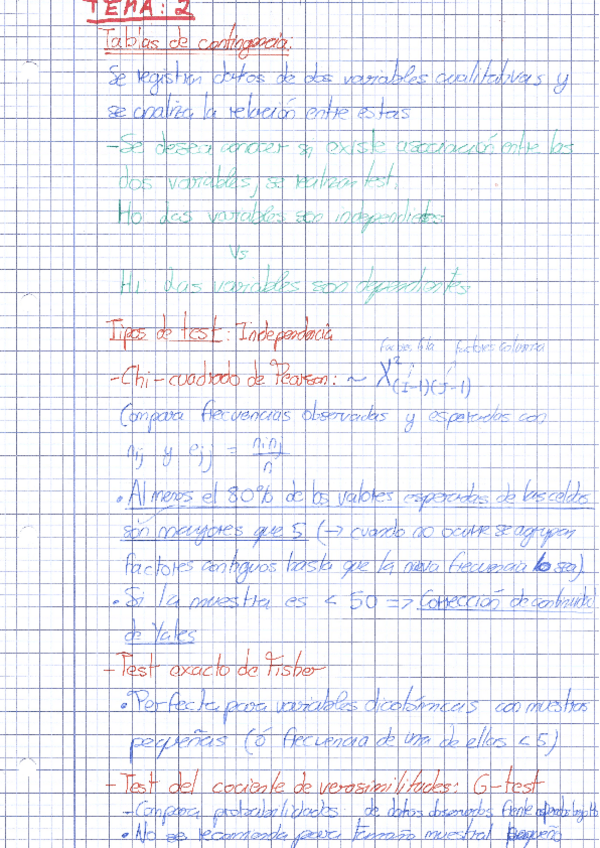 TEMA: 2
Tablas de contingencia:
Se registran datos de dos variables cualitativas y
se analiza la relación entre estas
-Se desea conocer si existe asociación entre las
dos variables, se realizan test.
Ho Las variables son independientes
Vs
H1 Las variables son dependientes
Tipos de test: Independencia
factores fila factores columna
-Chi-cuadrado de Pearson: ~ X²(i-1)(j-1)
Compara frecuencias observadas y esperadas con
nij y eij = ni nj / n
• Al menos el 80% de los valores esperados de las celdas
son mayores que 5 (→ cuando no ocurre se agrupan
factores contiguos hasta que la nueva frecuencia lo sea)
• Si la muestra es < 50 => Corrección de continuidad
de Yates
-Test exacto de Fisher
• Perfecta para variables dicotómicas con muestras
pequeñas (ó frecuencia de una de ellas < 5)
-Test del cociente de verosimilitudes: G-test
-Compara probabilidades de datos observados frente
• No se recomienda para tamaño muestral pequeño